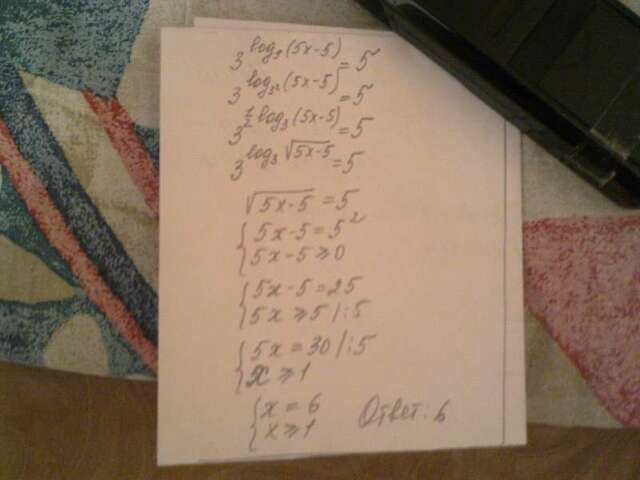 3^log₉(5x-5) = 5
3^log₃²(5x-5) = 5
3^½log₃(5x-5) = 5
3^log₃√(5x-5) = 5
√(5x-5) = 5
{5x-5=5²
{5x-5⩾0
{5x-5=25
{5x⩾5 |:5
{5x=30 |:5
{x⩾1
{x=6
{x⩾1 Ответ: 6